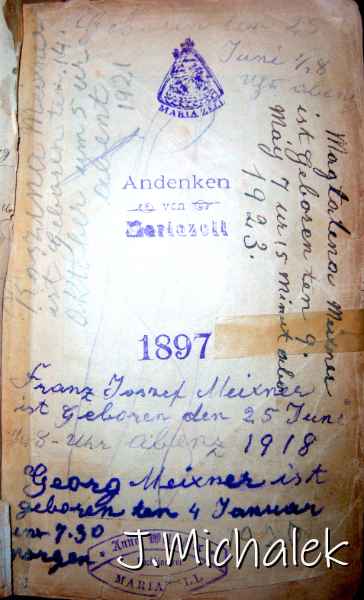 Geboren ten 25
Juni 1/2 8
MARIA ZELL
Rozina Meixner
ist geboren ten 14.
um 5 ur
abent
1921
Magtalena Meixner
ist geboren ten 9.
May 7 ur 15 minut
1923.
Andenken
von
Mariazell
1897
Franz Joszef Meixner
ist Geboren den 25 Juni
1/2 8 - uhr abenz 1918
Georg Meixner ist
geboren ten 4 Januar
um 7.30
morgen
MARIAZELL
J Michalek